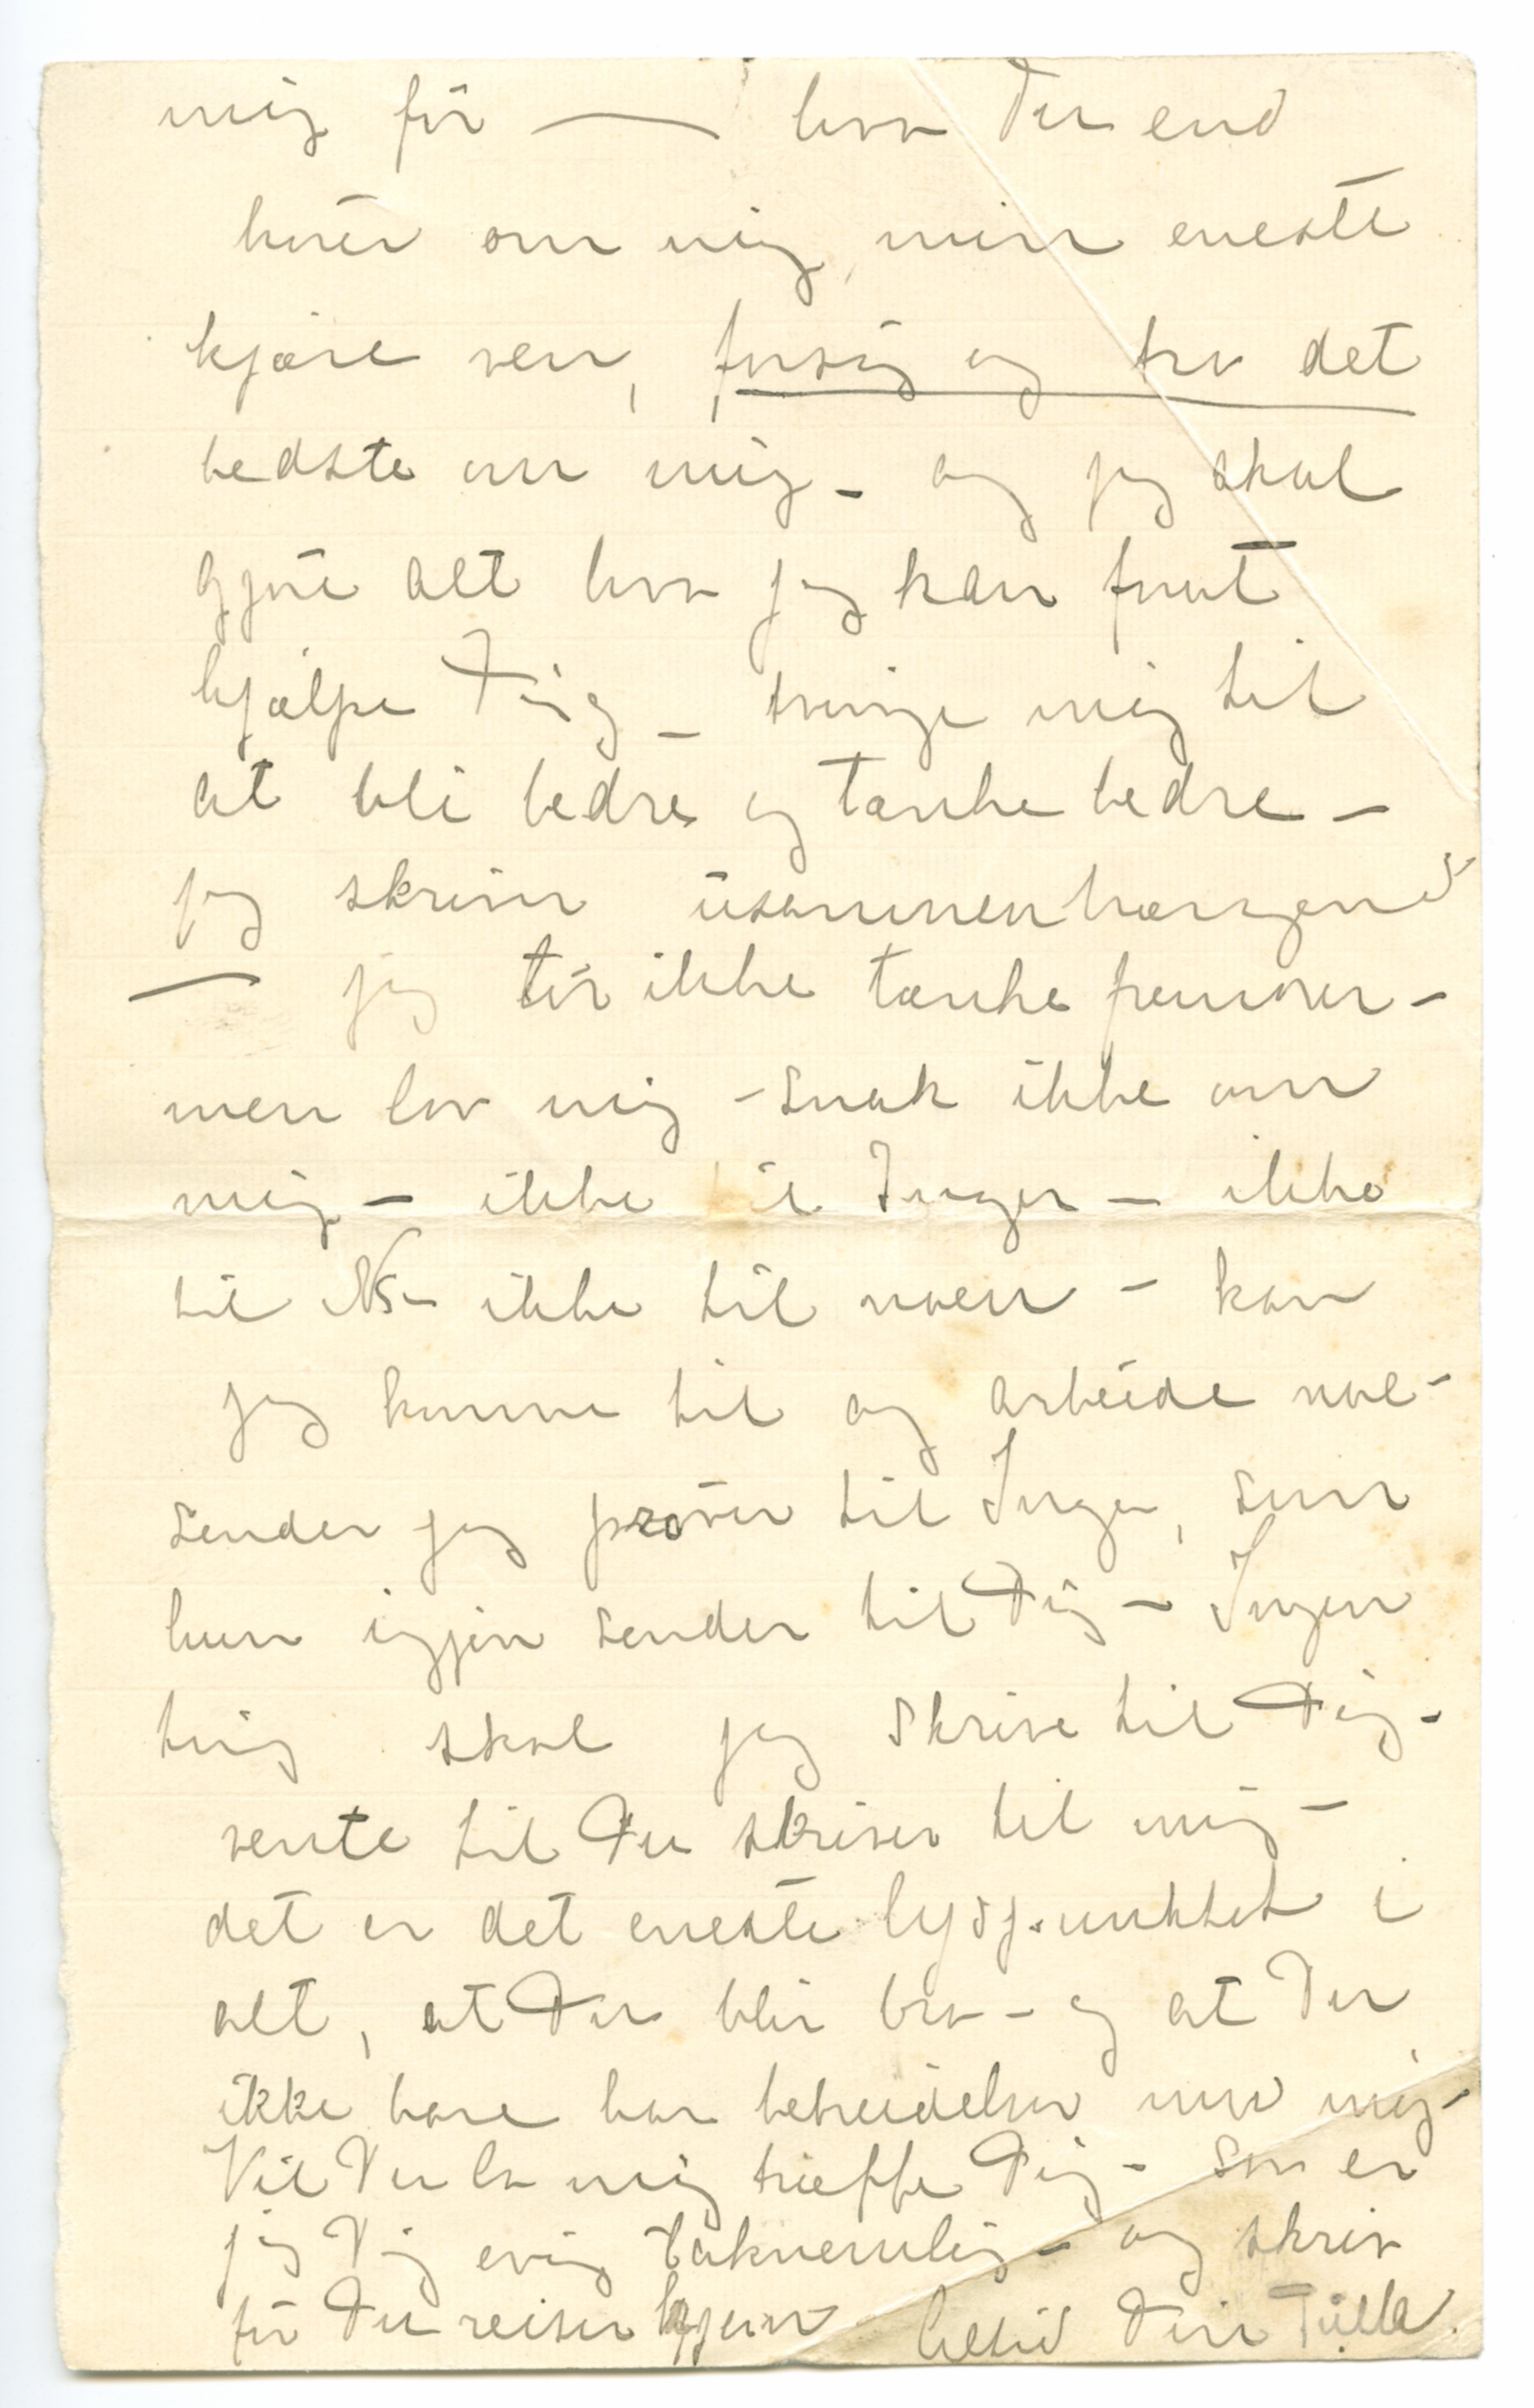 mig før — hva Du end
hører om mig, min eneste
kjære ven, forsøg og tro det
bedste om mig – og jeg skal
gjøre alt hva jeg kan forat
hjælpe Dig – tvinge mig til
at bli bedre og tænke bedre –
jeg skriver usammenhængend
— jeg tør ikke tænke fremover –
men lov mig – snak ikke om
mig – ikke til Inger – ikke
til NS – ikke til noen – kan
jeg komme til og arbeide noe –
sender jeg prøver til Inger, som
hun igjen sender til Dig – Ingen
ting skal jeg skrive til Dig –
vente til Du skriver til mig –
det er det eneste lyspunktet i
alt, at Du blir bra – og at Du
ikke bare har bebreidelser mod mig –
Vil Du la mig træffe Dig – saa er
jeg Dig evig taknemlig – og skriv
før Du reiser hjem Altid Din Tulla.